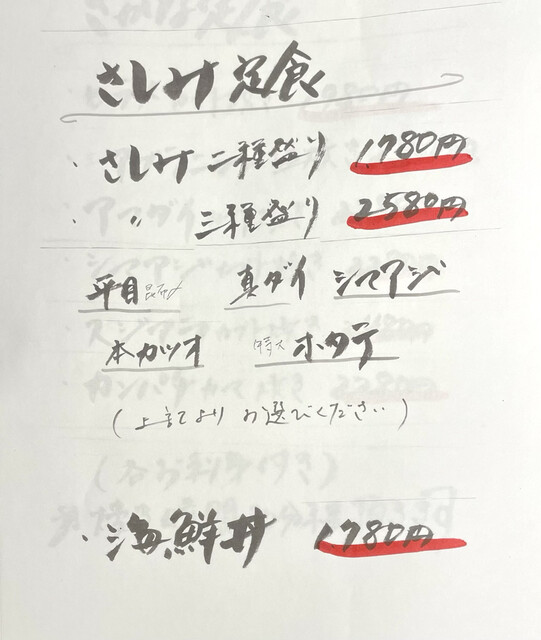 さしみ定食
・さしみ二種盛り 1780円
・〃 三種盛り 2580円
平目昆布〆 真ダイ シマアジ
本カツオ 特大ホタテ
(上記よりお選びください)
・海鮮丼 1780円